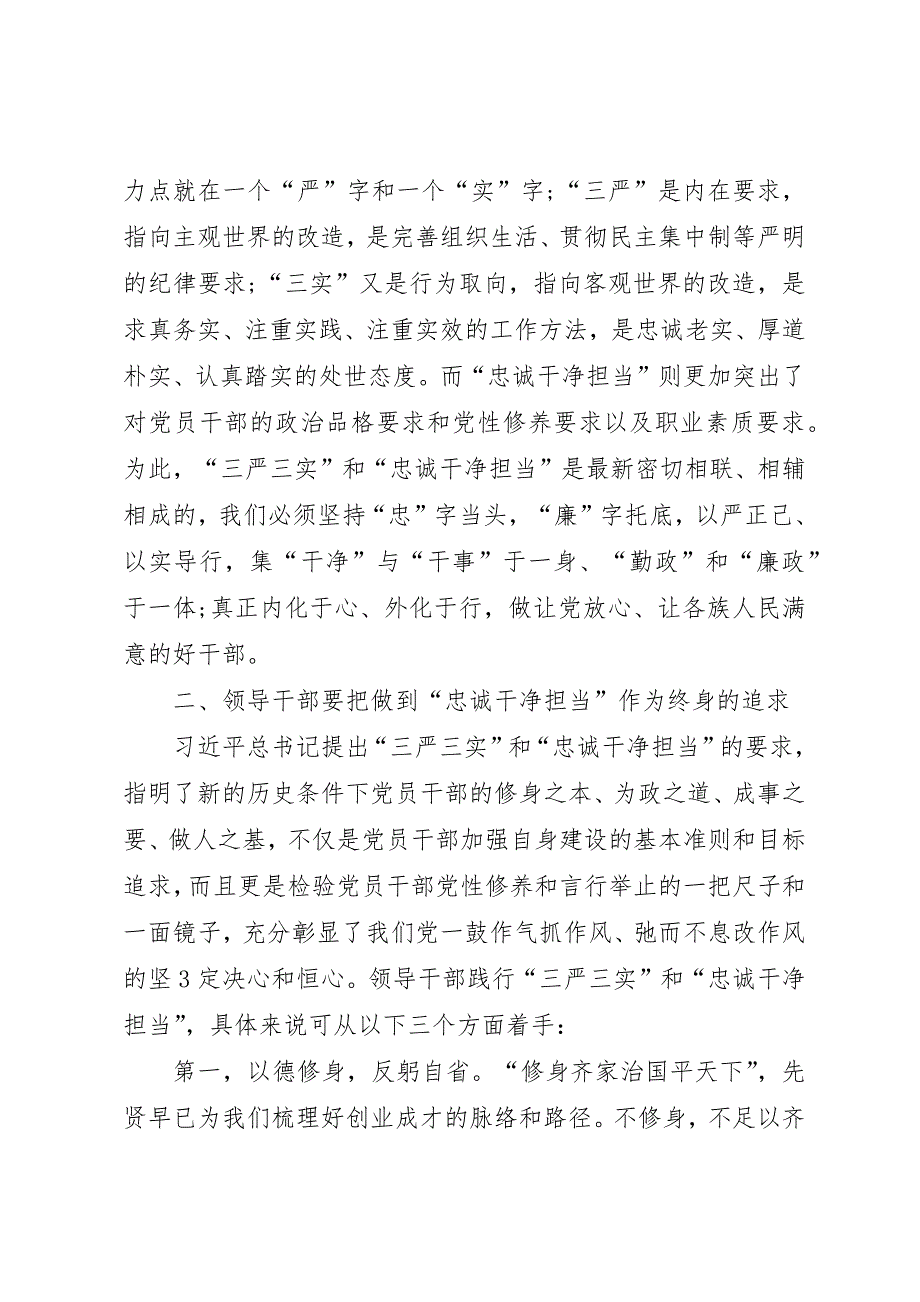 力点就在一个“严”字和一个“实”字;“三严”是内在要求，
指向主观世界的改造，是完善组织生活、贯彻民主集中制等严明
的纪律要求;“三实”又是行为取向，指向客观世界的改造，是
求真务实、注重实践、注重实效的工作方法，是忠诚老实、厚道
朴实、认真踏实的处世态度。而“忠诚干净担当”则更加突出了
对党员干部的政治品格要求和党性修养要求以及职业素质要求。
为此，“三严三实”和“忠诚干净担当”是最新密切相联、相辅
相成的，我们必须坚持“忠”字当头，“廉”字托底，以严正己、
以实导行，集“干净”与“干事”于一身、“勤政”和“廉政”
于一体;真正内化于心、外化于行，做让党放心、让各族人民满
意的好干部。
二、领导干部要把做到“忠诚干净担当”作为终身的追求
习近平总书记提出“三严三实”和“忠诚干净担当”的要求，
指明了新的历史条件下党员干部的修身之本、为政之道、成事之
要、做人之基，不仅是党员干部加强自身建设的基本准则和目标
追求，而且更是检验党员干部党性修养和言行举止的一把尺子和
一面镜子，充分彰显了我们党一鼓作气抓作风、弛而不息改作风
的坚3定决心和恒心。领导干部践行“三严三实”和“忠诚干净
担当”，具体来说可从以下三个方面着手：
第一，以德修身，反躬自省。“修身齐家治国平天下”，先
贤早已为我们梳理好创业成才的脉络和路径。不修身，不足以齐